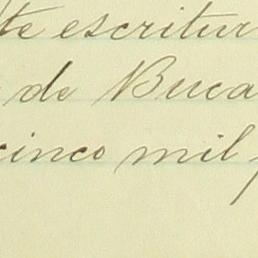 te escritur
de Buca
cinco mil